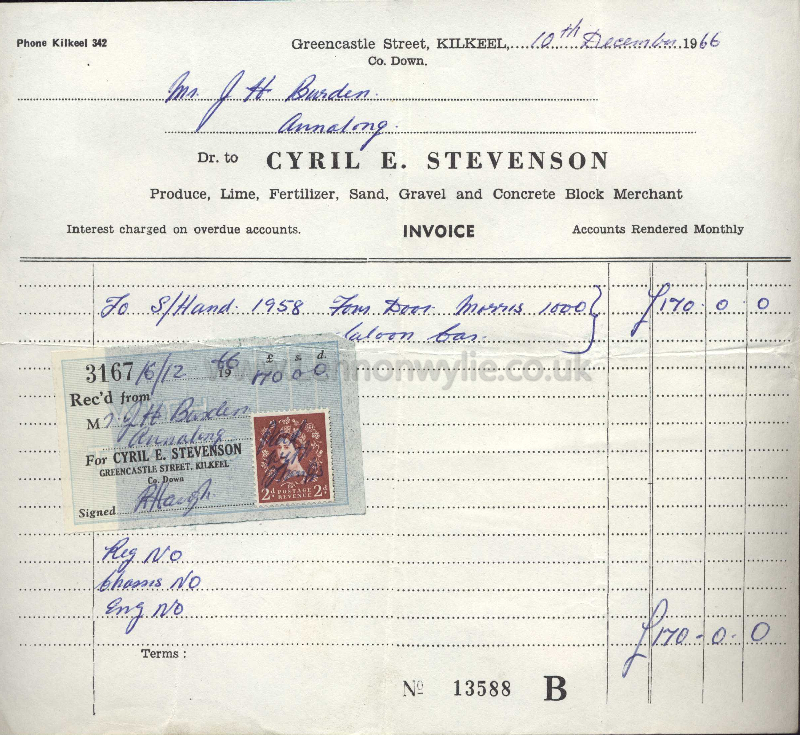 Phone Kilkeel 342
Greencastle Street, KILKEEL, 10th December 1966
Co. Down.
Mr. J H Burden.
Annalong.
Dr. to CYRIL E. STEVENSON
Produce, Lime, Fertilizer, Sand, Gravel and Concrete Block Merchant
Interest charged on overdue accounts. INVOICE Accounts Rendered Monthly
To S/Hand. 1958 Four Door Morris 1000 £170. 0. 0
Saloon Car.
www.lennonwylie.co.uk
£ s. d.
3167 16/12 1966 170 0 0
Rec'd from
Mr. J H Burden
Annalong
For CYRIL E. STEVENSON
GREENCASTLE STREET, KILKEEL
Co. Down
Signed
2d POSTAGE REVENUE 2d
Reg NO
Chassis NO
Eng NO
£170-0-0
Terms :
No 13588 B